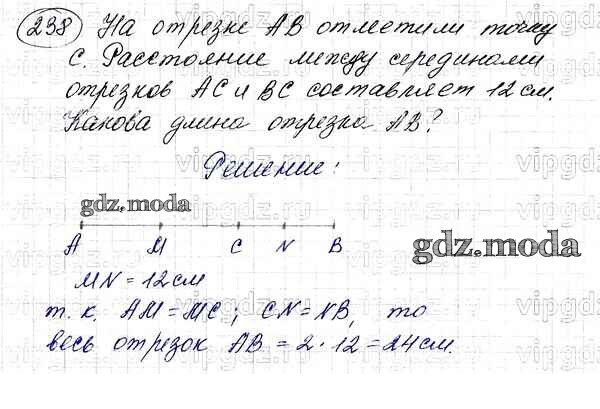 238 На отрезке АВ отметили точку
С. Расстояние между серединами
отрезков АС и ВС составляет 12 см.
Какова длина отрезка АВ?
Решение:
gdz.moda
А М С N В
gdz.moda
MN = 12 см
т. к. АМ = МС; CN = NB, то
весь отрезок АВ = 2 · 12 = 24 см.